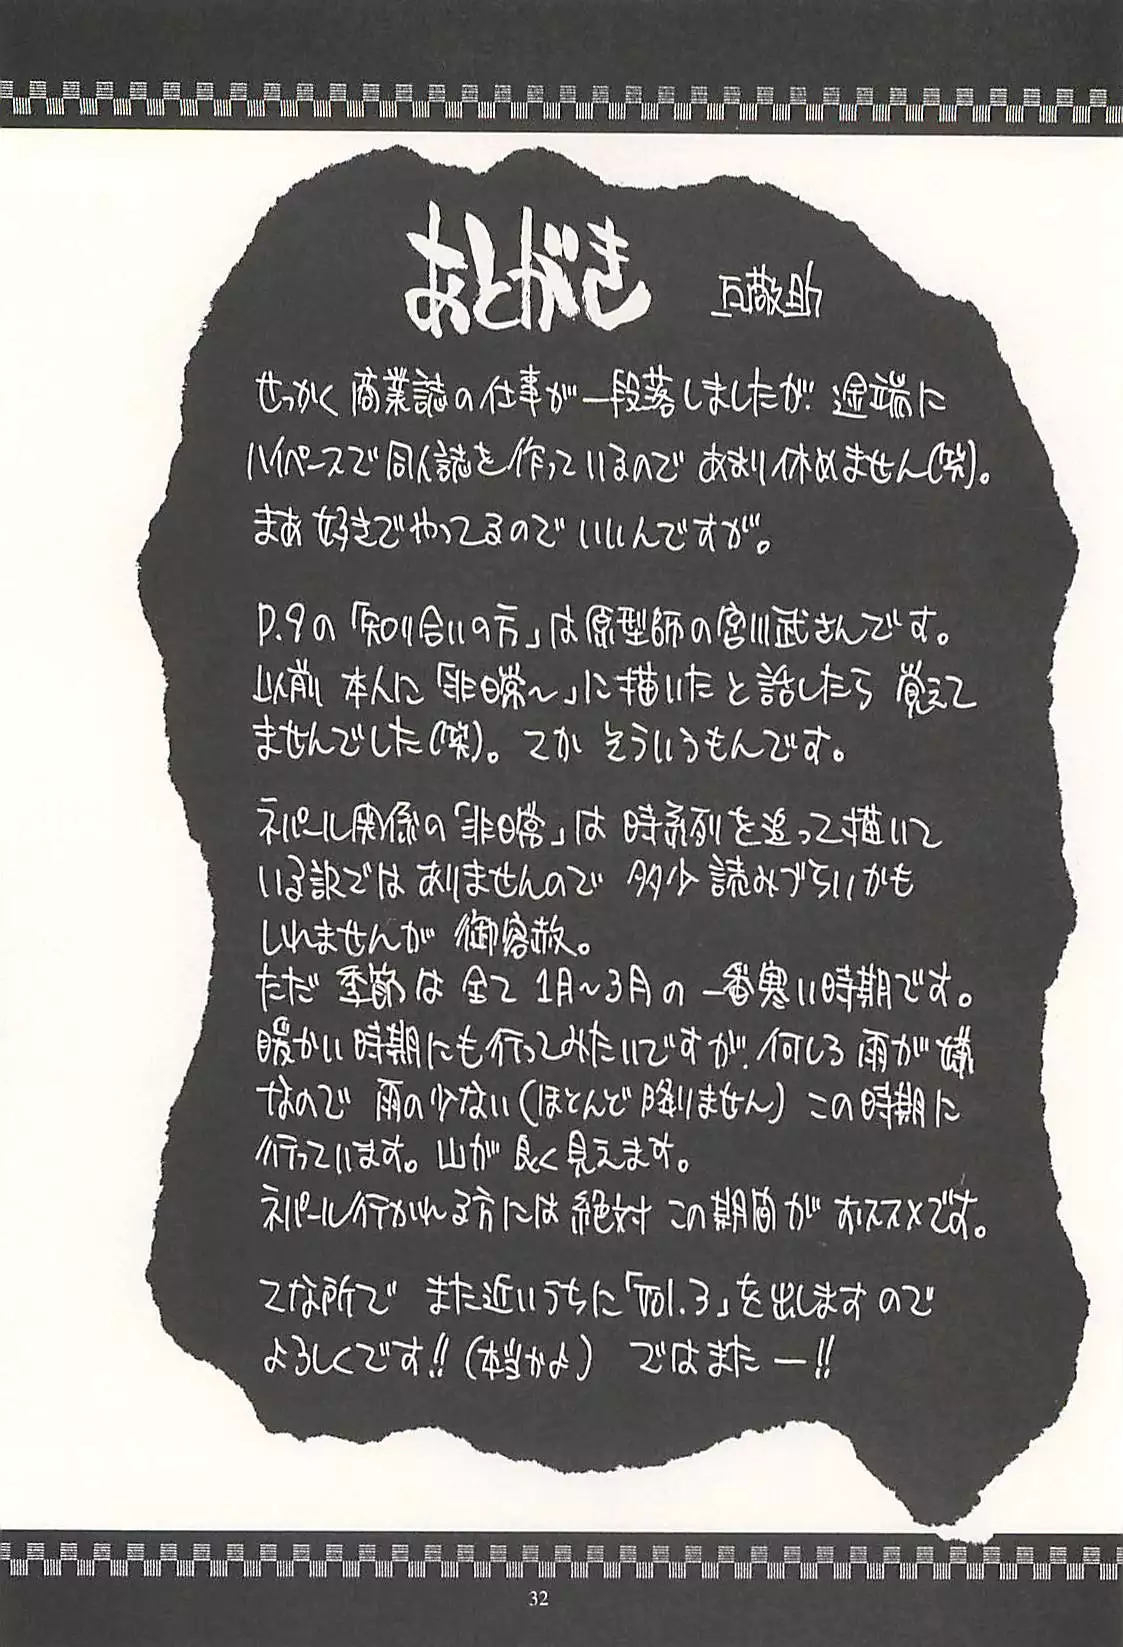 あとがき
互敬助
せっかく 商業誌の仕事が 一段落しましたが、途端に
ハイペースで 同人誌を 作っているので あまり休めません(笑)。
まあ 好きでやってるので いいんですが。
P.9の「知り合いの方」は原型師の宮川武さんです。
以前 本人に「非日常〜」に描いたと話したら 覚えて
ませんでした(笑)。てか そういうもんです。
ネパール関係の「非日常」は 時系列を追って描いて
いる訳では ありませんので 多少 読みづらいかも
しれませんが 御容赦。
ただ 季節は 全て 1月〜3月の 一番寒い時期です。
暖かい時期にも行ってみたいですが、何しろ 雨が嫌
なので 雨の少ない(ほとんど降りません) この時期に
行っています。山が 良く見えます。
ネパール行かれる方には絶対 この期間が オススメです。
てな所で また近いうちに「Vol.3」を出しますので
よろしくです!!(本当かよ) ではまたー!!
32